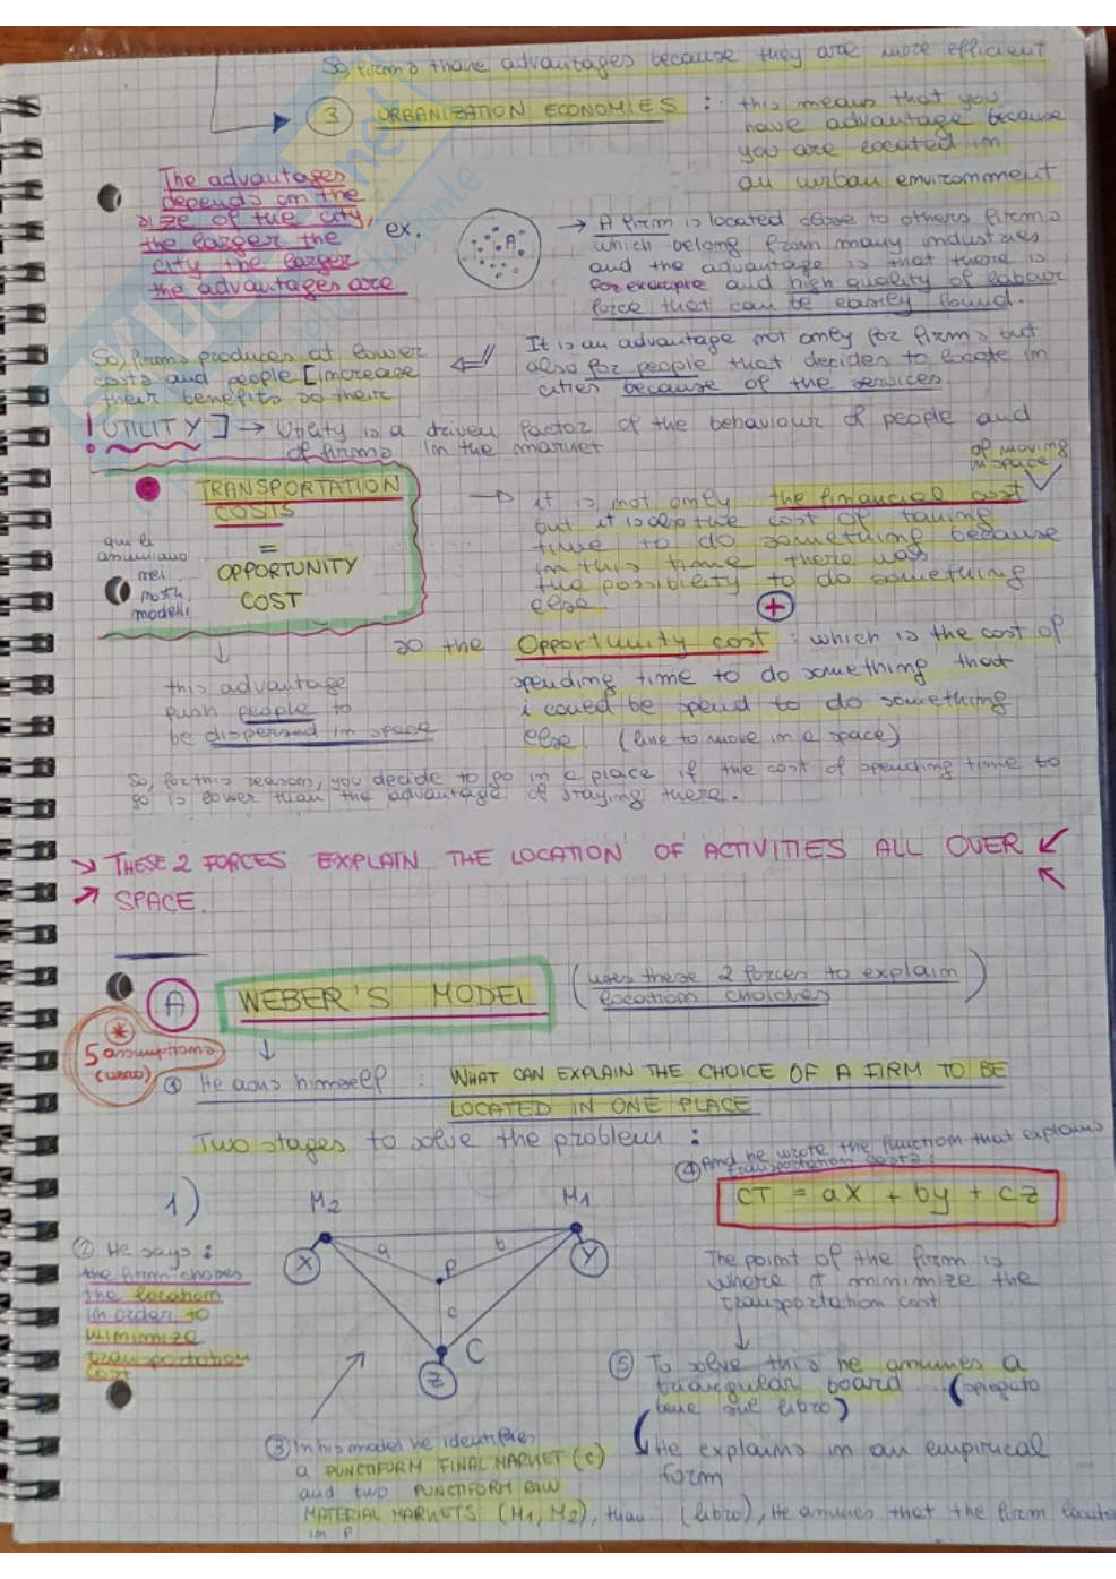 So, firms have advantages because they are more efficient
3 URBANIZATION ECONOMIES : this means that you
have advantage because
you are located in
an urban environment
The advantages
depends on the
size of the city,
the larger the
city the larger
the advantages are
ex.
A
→ A firm is located close to others firms
which belong from many industries
and the advantage is that there is
for example and high quality of labour
force that can be easily found.
It is an advantage not only for firms but
also for people that decides to locate in
cities because of the services
So, firms produces at lower
costs and people [increase
their benefits so their
! UTILITY] → Utility is a driven factor of the behaviour of people and
of firms in the market
TRANSPORTATION
COSTS
=
OPPORTUNITY
COST
qui li
assumiamo
nei
math
modelli
→ it is not only the financial cost
of moving
in space
but it is also the cost of taking
time to do something because
in this time there was
the possibility to do something
else.
+
so the Opportunity cost : which is the cost of
spending time to do something that
i could be spend to do something
else (like to move in a space)
↓
this advantage
push people to
be dispersed in space
So, for this reason, you decide to go in a place if the cost of spending time to
go is lower than the advantage of staying there.
THESE 2 FORCES EXPLAIN THE LOCATION OF ACTIVITIES ALL OVER
SPACE.
A WEBER'S MODEL (uses these 2 forces to explain
location choiches)
*
5 assumptions
(libro)
↓
① He asks himself : WHAT CAN EXPLAIN THE CHOICE OF A FIRM TO BE
LOCATED IN ONE PLACE
Two stages to solve the problem :
④ And he wrote the function that explains
transportation costs:
CT = ax + by + cz
1)
M2 M1
X Y
a b
P
c
C
Z
② He says :
the firm choses
the location
in order to
minimize
transportation
cost
The point of the firm is
where it minimize the
transportation cost
↓
⑤ To solve this he assumes a
triangular board (spiegato
bene sul libro)
He explains in an empirical
form
③ In his model he identifies
a PUNCTIFORM FINAL MARKET (C)
and two PUNCTIFORM RAW
MATERIAL MARKETS (M1, M2), than (libro), He assumes that the firm locates
in P